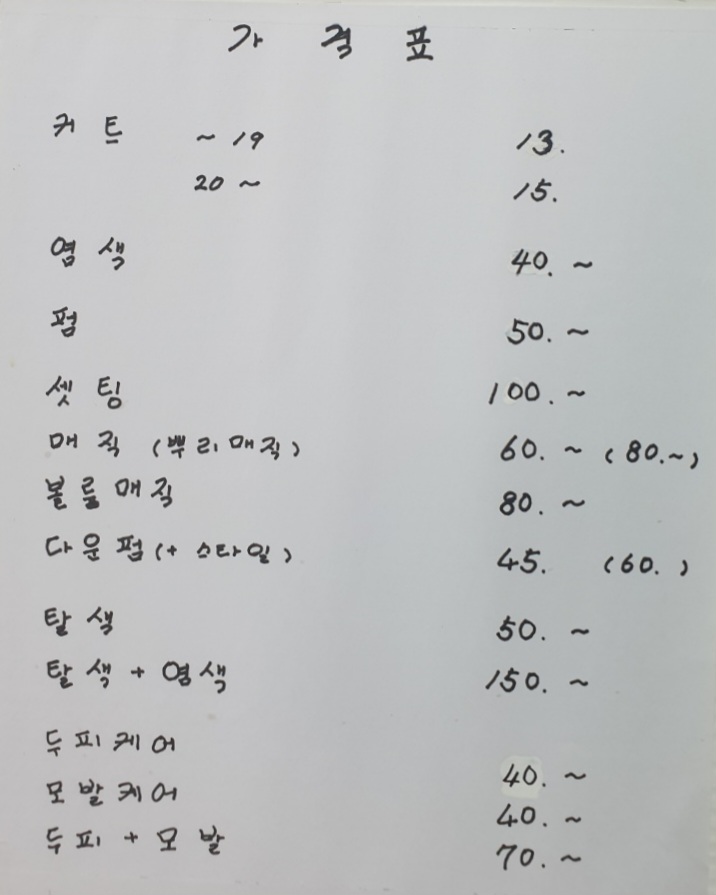 가 격 표
커 트 ~ 19 13.
20 ~ 15.
염 색 40. ~
펌 50. ~
셋 팅 100. ~
매 직 (뿌리매직) 60. ~ (80.~)
볼륨매직 80. ~
다운 펌 (+ 스타일) 45. (60. )
탈 색 50. ~
탈 색 + 염색 150. ~
두피케어 40. ~
모발케어 40. ~
두 피 + 모 발 70. ~